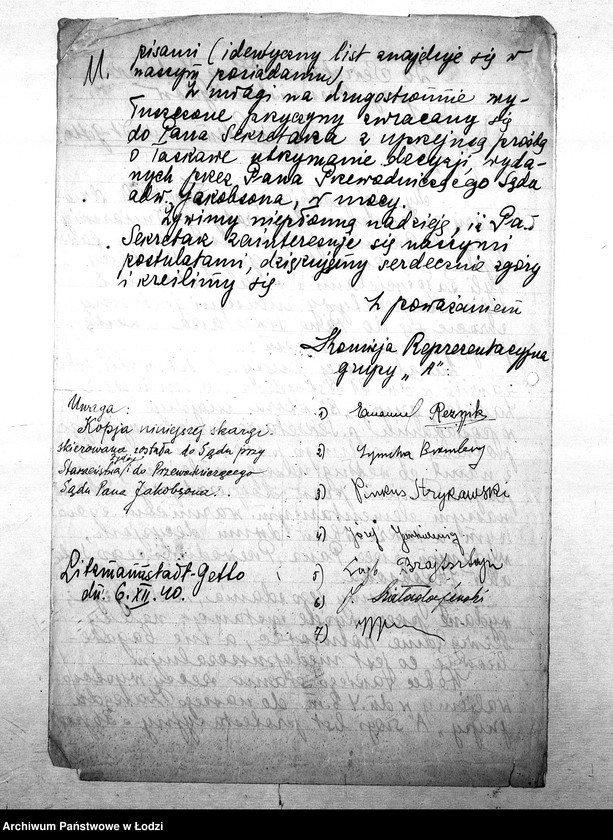 11. pisami (identyczny list znajduje się w
naszym posiadaniu)
Z uwagi na drugostronnie wy-
łuszczone przyczyny zwracamy się
do Pana Sekretarza z uprzejmą prośbą
o łaskawe utrzymanie decyzji, wyda-
nych przez Pana Przewodniczącego Sądu
adw. Jakobsona, w mocy.
Żywimy niepłonną nadzieję, iż Pan
Sekretarz zainteresuje się naszymi
postulatami, dziękujemy serdecznie zgóry
i kreślimy się
Z poważaniem
Komisja Reprezentacyjna
grupy "A"
Uwaga:
Kopja niniejszej skargi
skierowana została do Sądu przy
do Przewodniczącego
Sądu Pana Jakobsona.
Litzmannstadt-Getto
dn. 6.XII.40.
1) Emanuel Reznik
2) Symcha Bromberg
3) Pinkus Strykowski
4) Józef
5) Brajtsztajn
6) J.
7)
Archiwum Państwowe w Łodzi